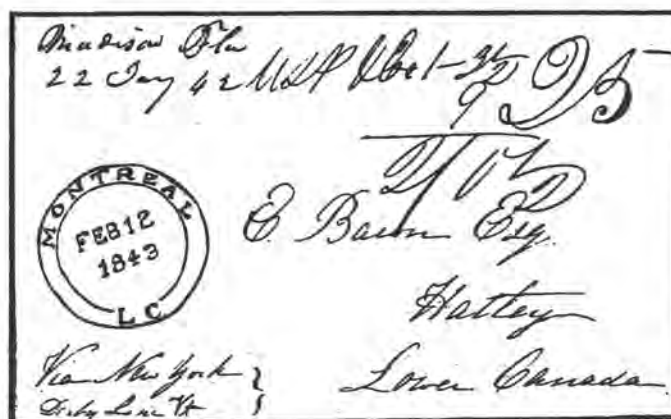 Madison Fla
22 Jany 42 25
MONTREAL
FEB 12
1843
L C
E. Bacon Esq.
Hatley
Lower Canada
Via New York
Derby Line Vt